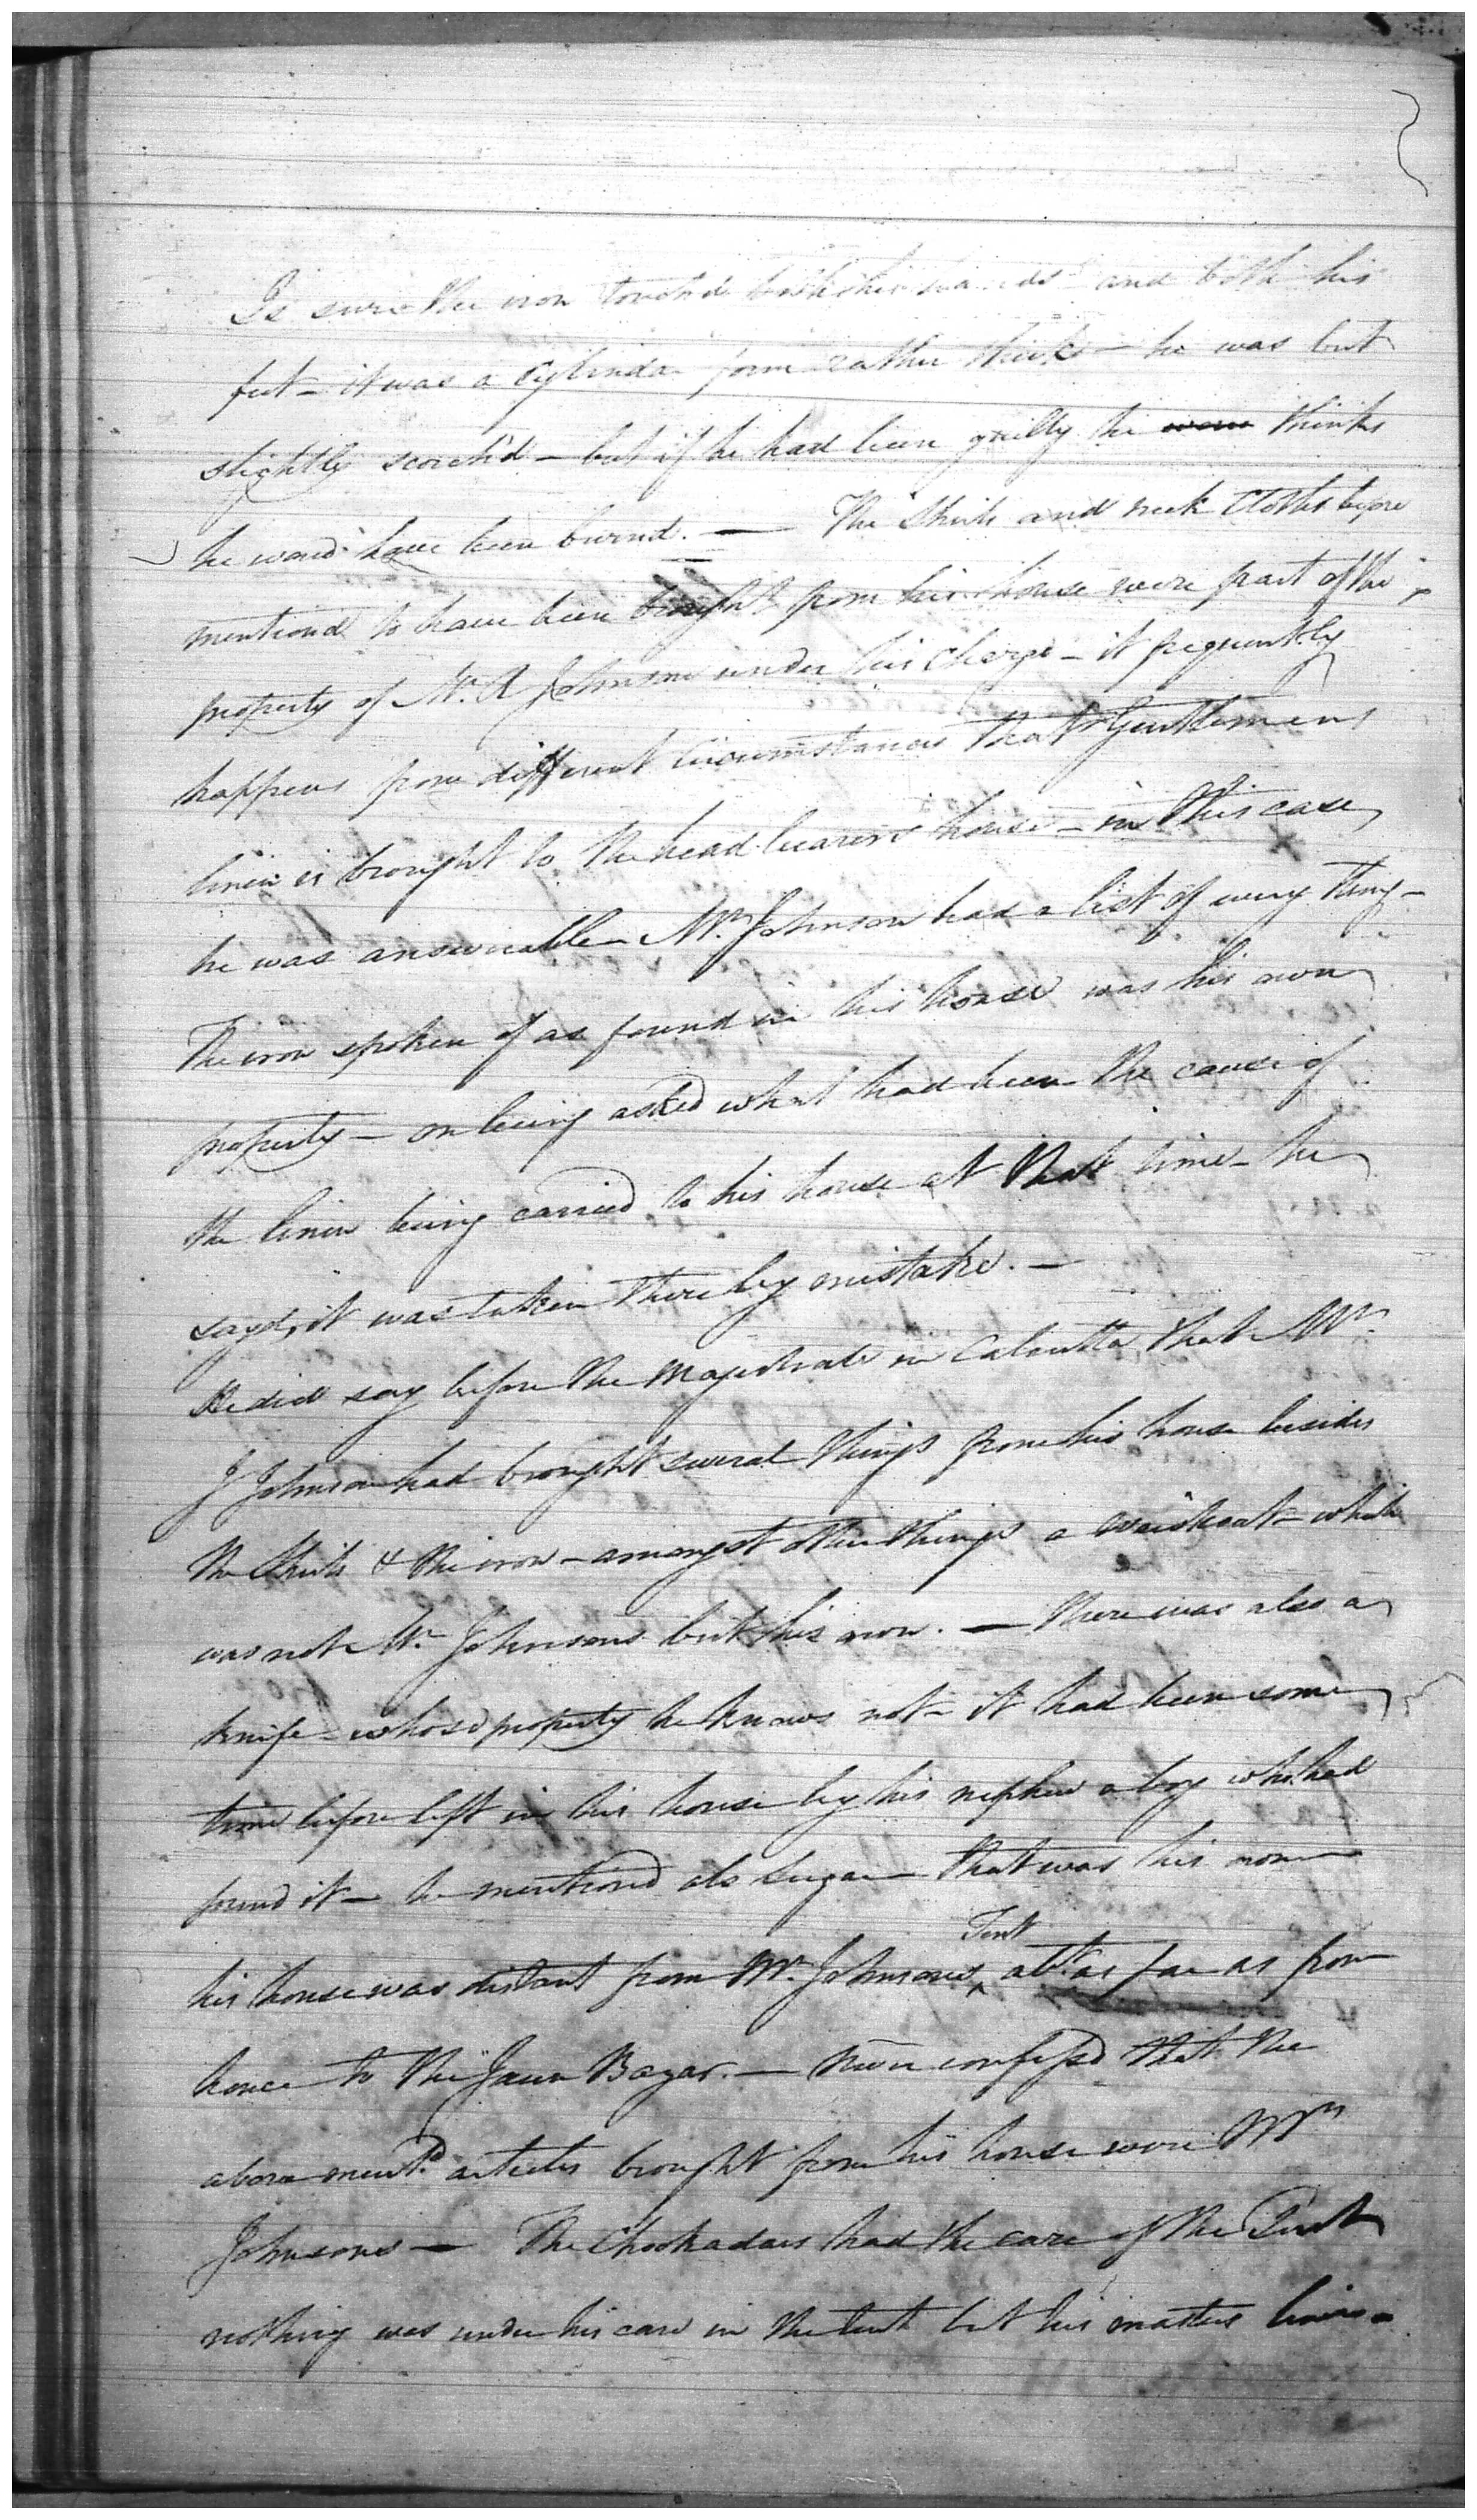 Is sure the iron touched both his hands and both his
feet - it was a Cylinder form rather thick - he was but
slightly scorch'd - but if he had been guilty he thinks
he would have been burnd. — The Shirts and neck Cloths before
mentiond to have been brought from his house were part of the
property of Mr. R Johnson under his Charge - it frequently
happens from different Circumstances that Gentlemens
linen is brought to the head bearers house - in this case
he was answerable - Mr. Johnson had a list of every thing -
The iron spoken of as found in his house was his own
property - on being asked what had been the cause of
the linen being carried to his house at that time - he
says, it was taken there by mistake. —
He did say before the Majestrate in Calcutta that Mr.
J Johnson had brought several things from his house besides
the Shirts & the iron - amongst other things a Waistcoat - which
was not Mr. Johnsons but his own. — There was also a
knife - whose property he knows not - it had been some
time before left in his house by his nephew a boy who had
found it - he mentioned als Sugar - that was his own
his house was distant from Mr. Johnsons ^ Tent abt. as far as from
hence to the Jaun Bazar. — Never confess'd that the
above ment.d articles brought from his house were Mr
Johnsons — The Chokadars had the care of the Tent
nothing was under his care in the tent but his masters linen -